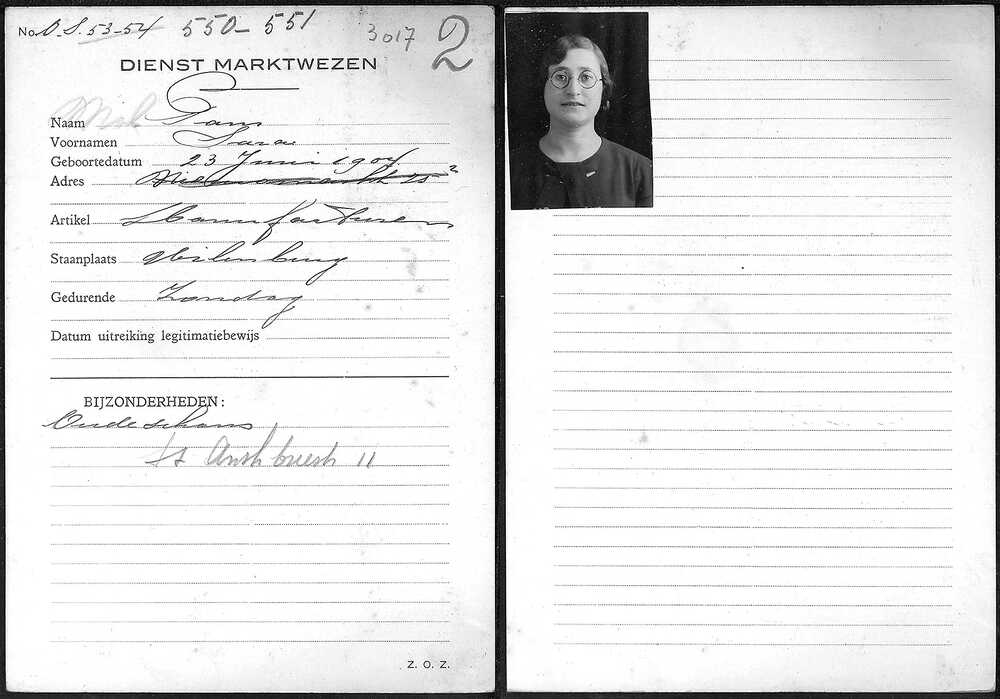 No. O.S. 53-54 550-551 3017 2
DIENST MARKTWEZEN
Naam Gans
Voornamen Sara
Geboortedatum 23 Juni 1904
Adres
Artikel Manufacturen
Staanplaats Uilenburg
Gedurende Zondag
Datum uitreiking legitimatiebewijs
BIJZONDERHEDEN:
Oude schans
St Anth breestr 11
Z. O. Z.